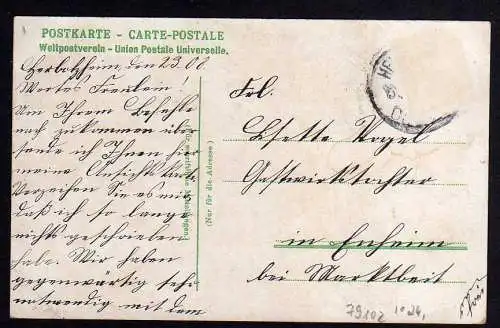 POSTKARTE - CARTE-POSTALE
Weltpostverein - Union Postale Universelle.
Herbolzheim, den 23.08.
Wertes Fräulein!
Um Ihrem Befehle
nach zukommen über
sende ich Ihnen hier
meine Ansichtskart.
Verzeihen Sie es mir
daß ich so lange
nichts geschrieben
habe. Wir haben
gegenwärtig sehr
notwendig mit dem
(Nur für die Adresse)
Frl.
Babette Vogel
Gastwirtstochter
in Enheim
bei Marktbeit
79102